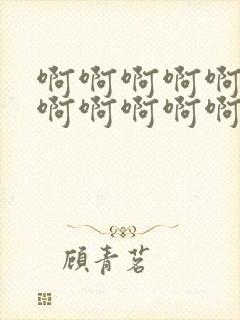 啊啊啊啊啊
啊啊啊啊啊
顾青茗